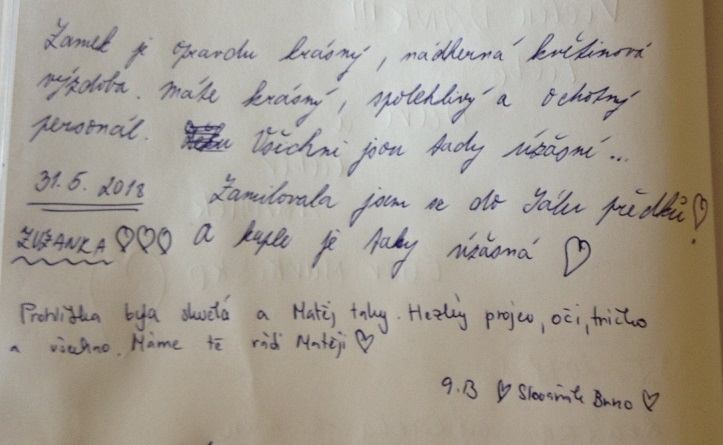 Zámek je opravdu krásný, nádherná květinová
výzdoba. Máte krásný, spolehlivý a ochotný
personál. Všichni jsou tady úžasní...
31.5.2018 Zamilovala jsem se do Sálu předků ♡!
ZUZANKA ♡♡♡ A kaple je taky úžasná ♡
Prohlížka byla skvělá a Matěj taky. Hezký projev, oči, tričko
a všechno. Máme tě rádi Matěji ♡
9.B ♡ Slovaňák Brno ♡